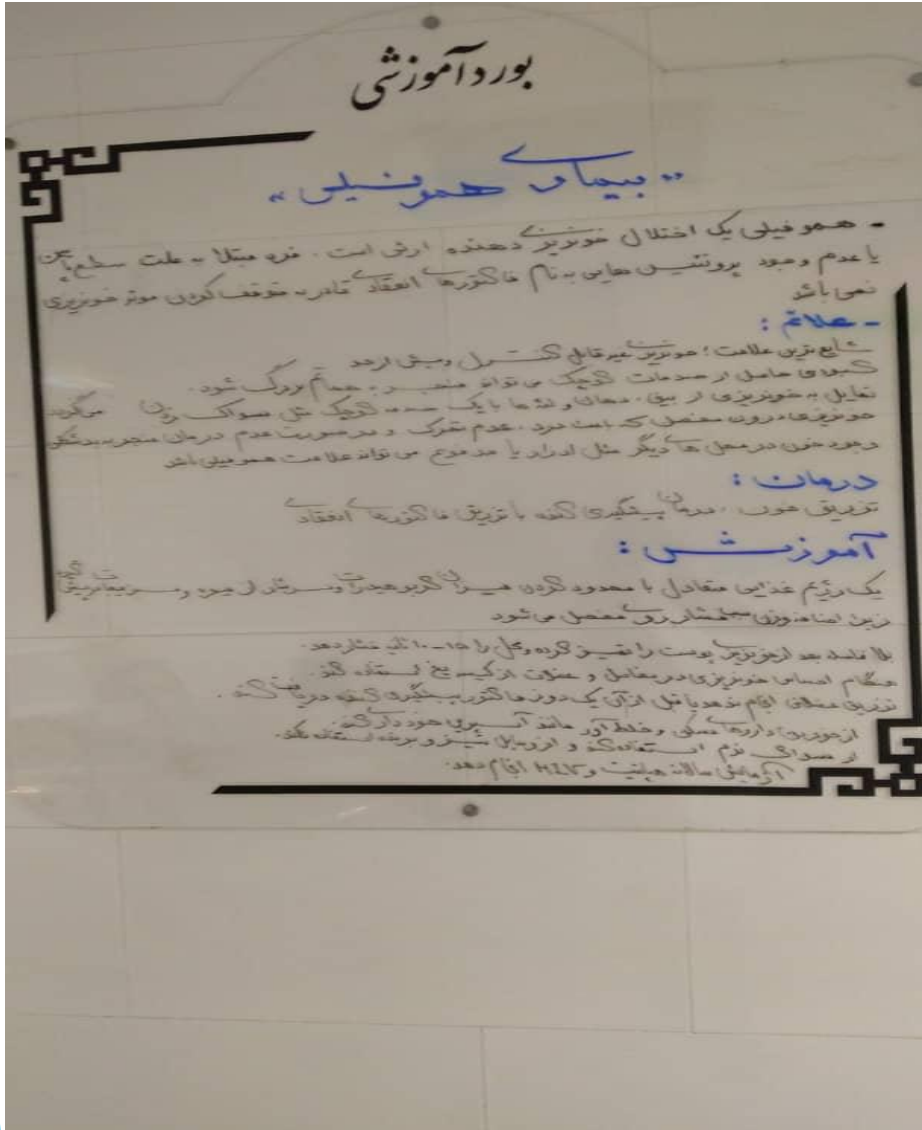 بورد آموزشی
"بیماری هموفیلی"
- هموفیلی یک اختلال خونریزی دهنده ارثی است. فرد مبتلا به علت سطح پایین
یا عدم وجود پروتئین هایی به نام فاکتورهای انعقادی قادر به متوقف کردن موثر خونریزی
نمی باشد
- علائم :
شایع ترین علامت؛ خونریزی غیر قابل کنترل و بیش از حد
کبودی حاصل از صدمات کوچک می تواند منجر به هماتوم بزرگ شود.
تمایل به خونریزی از بینی، دهان و لثه ها با یک صدمه کوچک مثل مسواک زدن
خونریزی درون مفصل که است درد، عدم تحرک و در صورت عدم درمان منجر به بدشکلی میگردد
وجود خون در محل های دیگر مثل ادرار یا مدفوع می تواند علامت هموفیلی باشد
درمان :
تزریق خون، درمان پیشگیری کننده با تزریق فاکتورهای انعقادی
آموزش :
یک رژیم غذایی متعادل با محدود کردن میزان کربوهیدرات و سرشار از میوه و سبزیجات
زیرا اضافه وزن فشار روی مفصل می شود
بلا فاصله بعد از خونریزی پوست را تمیز کرده و محل را ۱۵-۱۰ ثانیه فشار دهد.
هنگام احساس خونریزی در مفاصل و عضلات از کیسه یخ استفاده کند.
تزریق عضلانی انجام ندهد یا قبل از آن یک دوز فاکتور پیشگیری کننده دریافت کند.
از خوردن داروهای مسکن و خلط آور مانند آسپرین خودداری کند.
از مسواک نرم استفاده کند و از وسایل تیز و برنده استفاده نکند.
آزمایش سالانه هپاتیت و HIV انجام دهد.